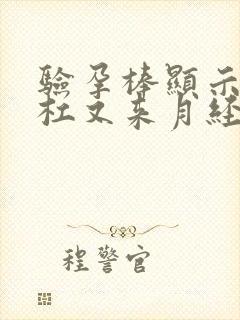 驗孕棒顯示
杠又来月經
程警官